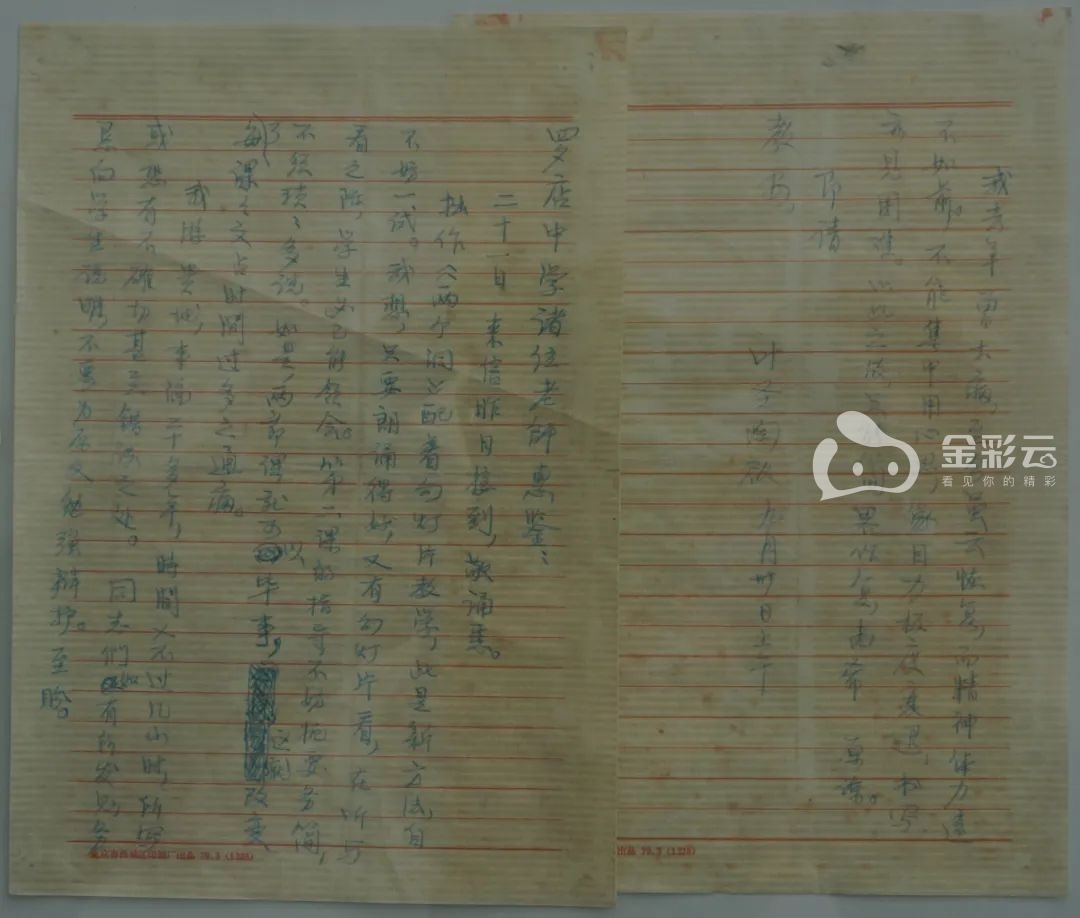 四夕店中学诸位老师惠鉴：
二十一日 来信昨日接到，敬诵悉。
拙作《两个洞》配着幻灯片教学，此是新方法，自
不妨一试。我想，只要朗诵得好，又有幻灯片看，在听与
看之际，学生必已能领会。第二课的指导不妨扼要务简，
不须琐琐多说。如是，两节课就可以毕事，这就改变
了每课之文占时间过多之通病。
我游贵地，事隔二十多年，时间又不过几小时，所写
或恐有不确切甚至错误之处。同志们如有所发现，务
恳向学生说明，不要为原文勉强辩护。至盼。
我去年曾大病，虽云恢复，而精神体力远
不如前。不能集中用心思，目力极度衰退，书写
亦见困难。以此之故，希 原谅。
即请
教安。
叶圣陶启 九月卅日上午
出品 79.3 (1328)
出品 79.3 (1328)
金彩云
看见你的精彩